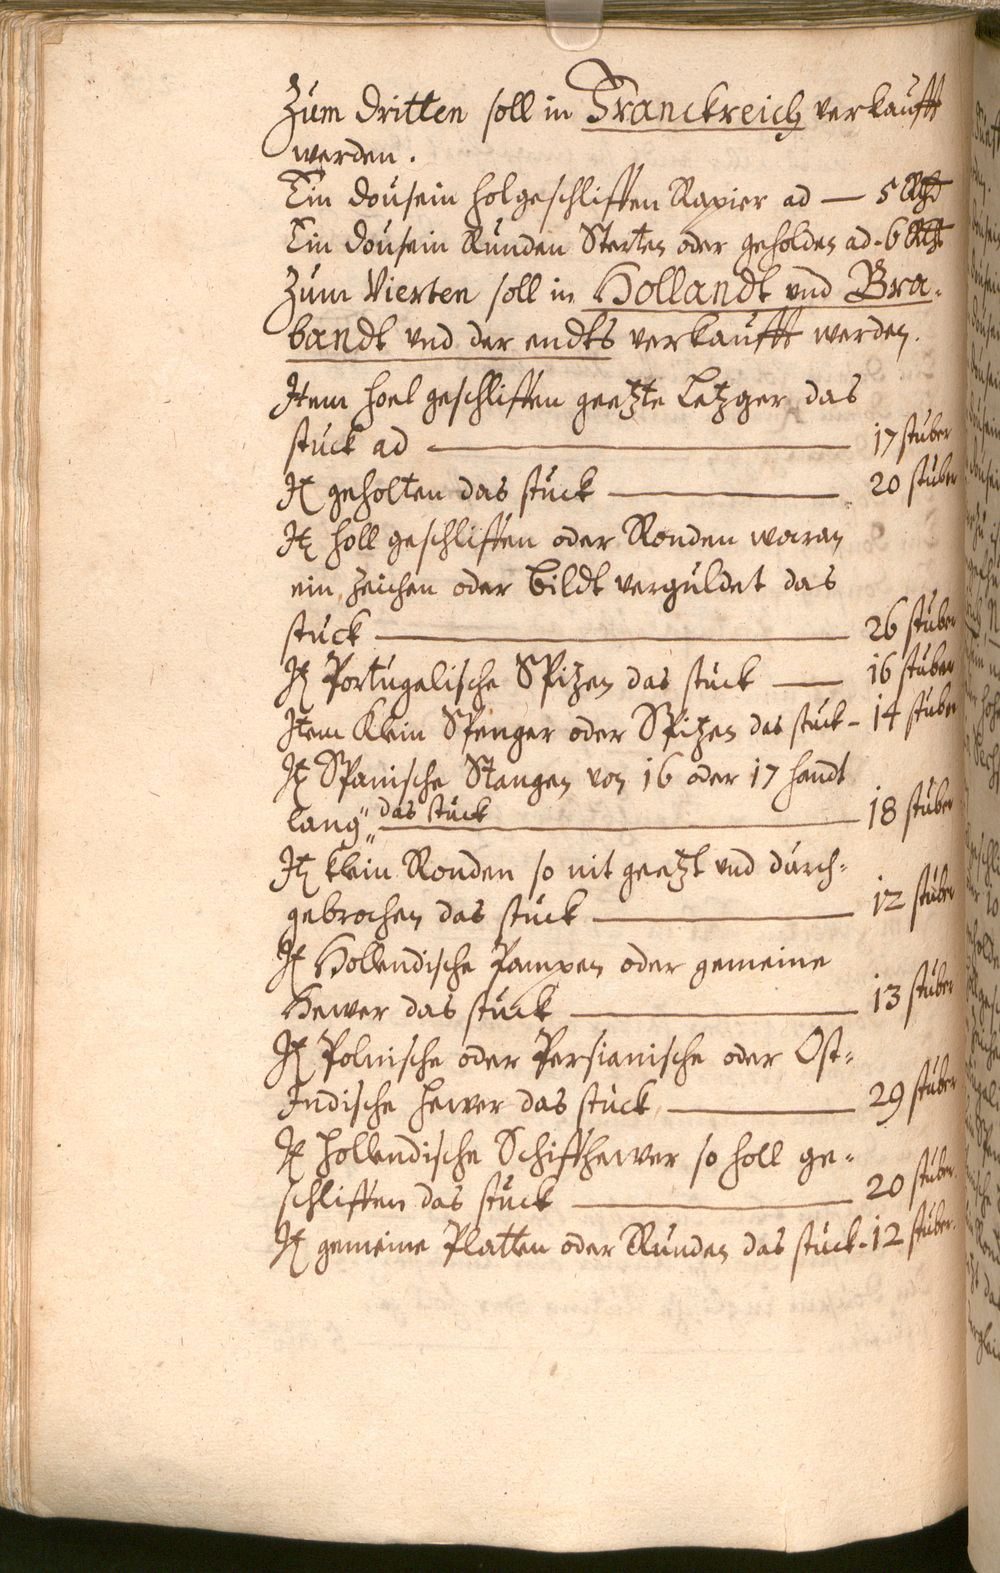 Zum dritten soll in Franckreich verkaufft
werden.
Ein dousein holgeschliffen Rapier ad — 5 Rthr
Ein dousein Runden Sterten oder geholden ad - 6 Rthr
Zum Vierten soll in Hollandt vnd Bra-
bandt vnd der endts verkaufft werden.
Item hoel geschliffen geetzte Letzger das
stuck ad — 17 stuber
It geholten das stuck — 20 stuber
It holl geschliffen oder Ronden waran
ein zeichen oder bildt verguldet das
stuck — 26 stuber
It Portugalische Spitzen das stuck — 16 stuber
Item Klein Spenger oder Spitzen das stuck - 14 stuber
It Spanische Stangen von 16 oder 17 handt
lang das stuck — 18 stuber
It klein Ronden so nit geetzt vnd durch-
gebrochen das stuck — 12 stuber
It Hollendische Pampen oder gemeine
Hewer das stuck — 13 stuber
It Polnische oder Persianische oder Ost-
Indische hewer das stuck — 29 stuber
It hollendische Schiffhewer so holl ge-
schliffen das stuck — 20 stuber
It gemeine Platten oder Runden das stuck - 12 stuber.